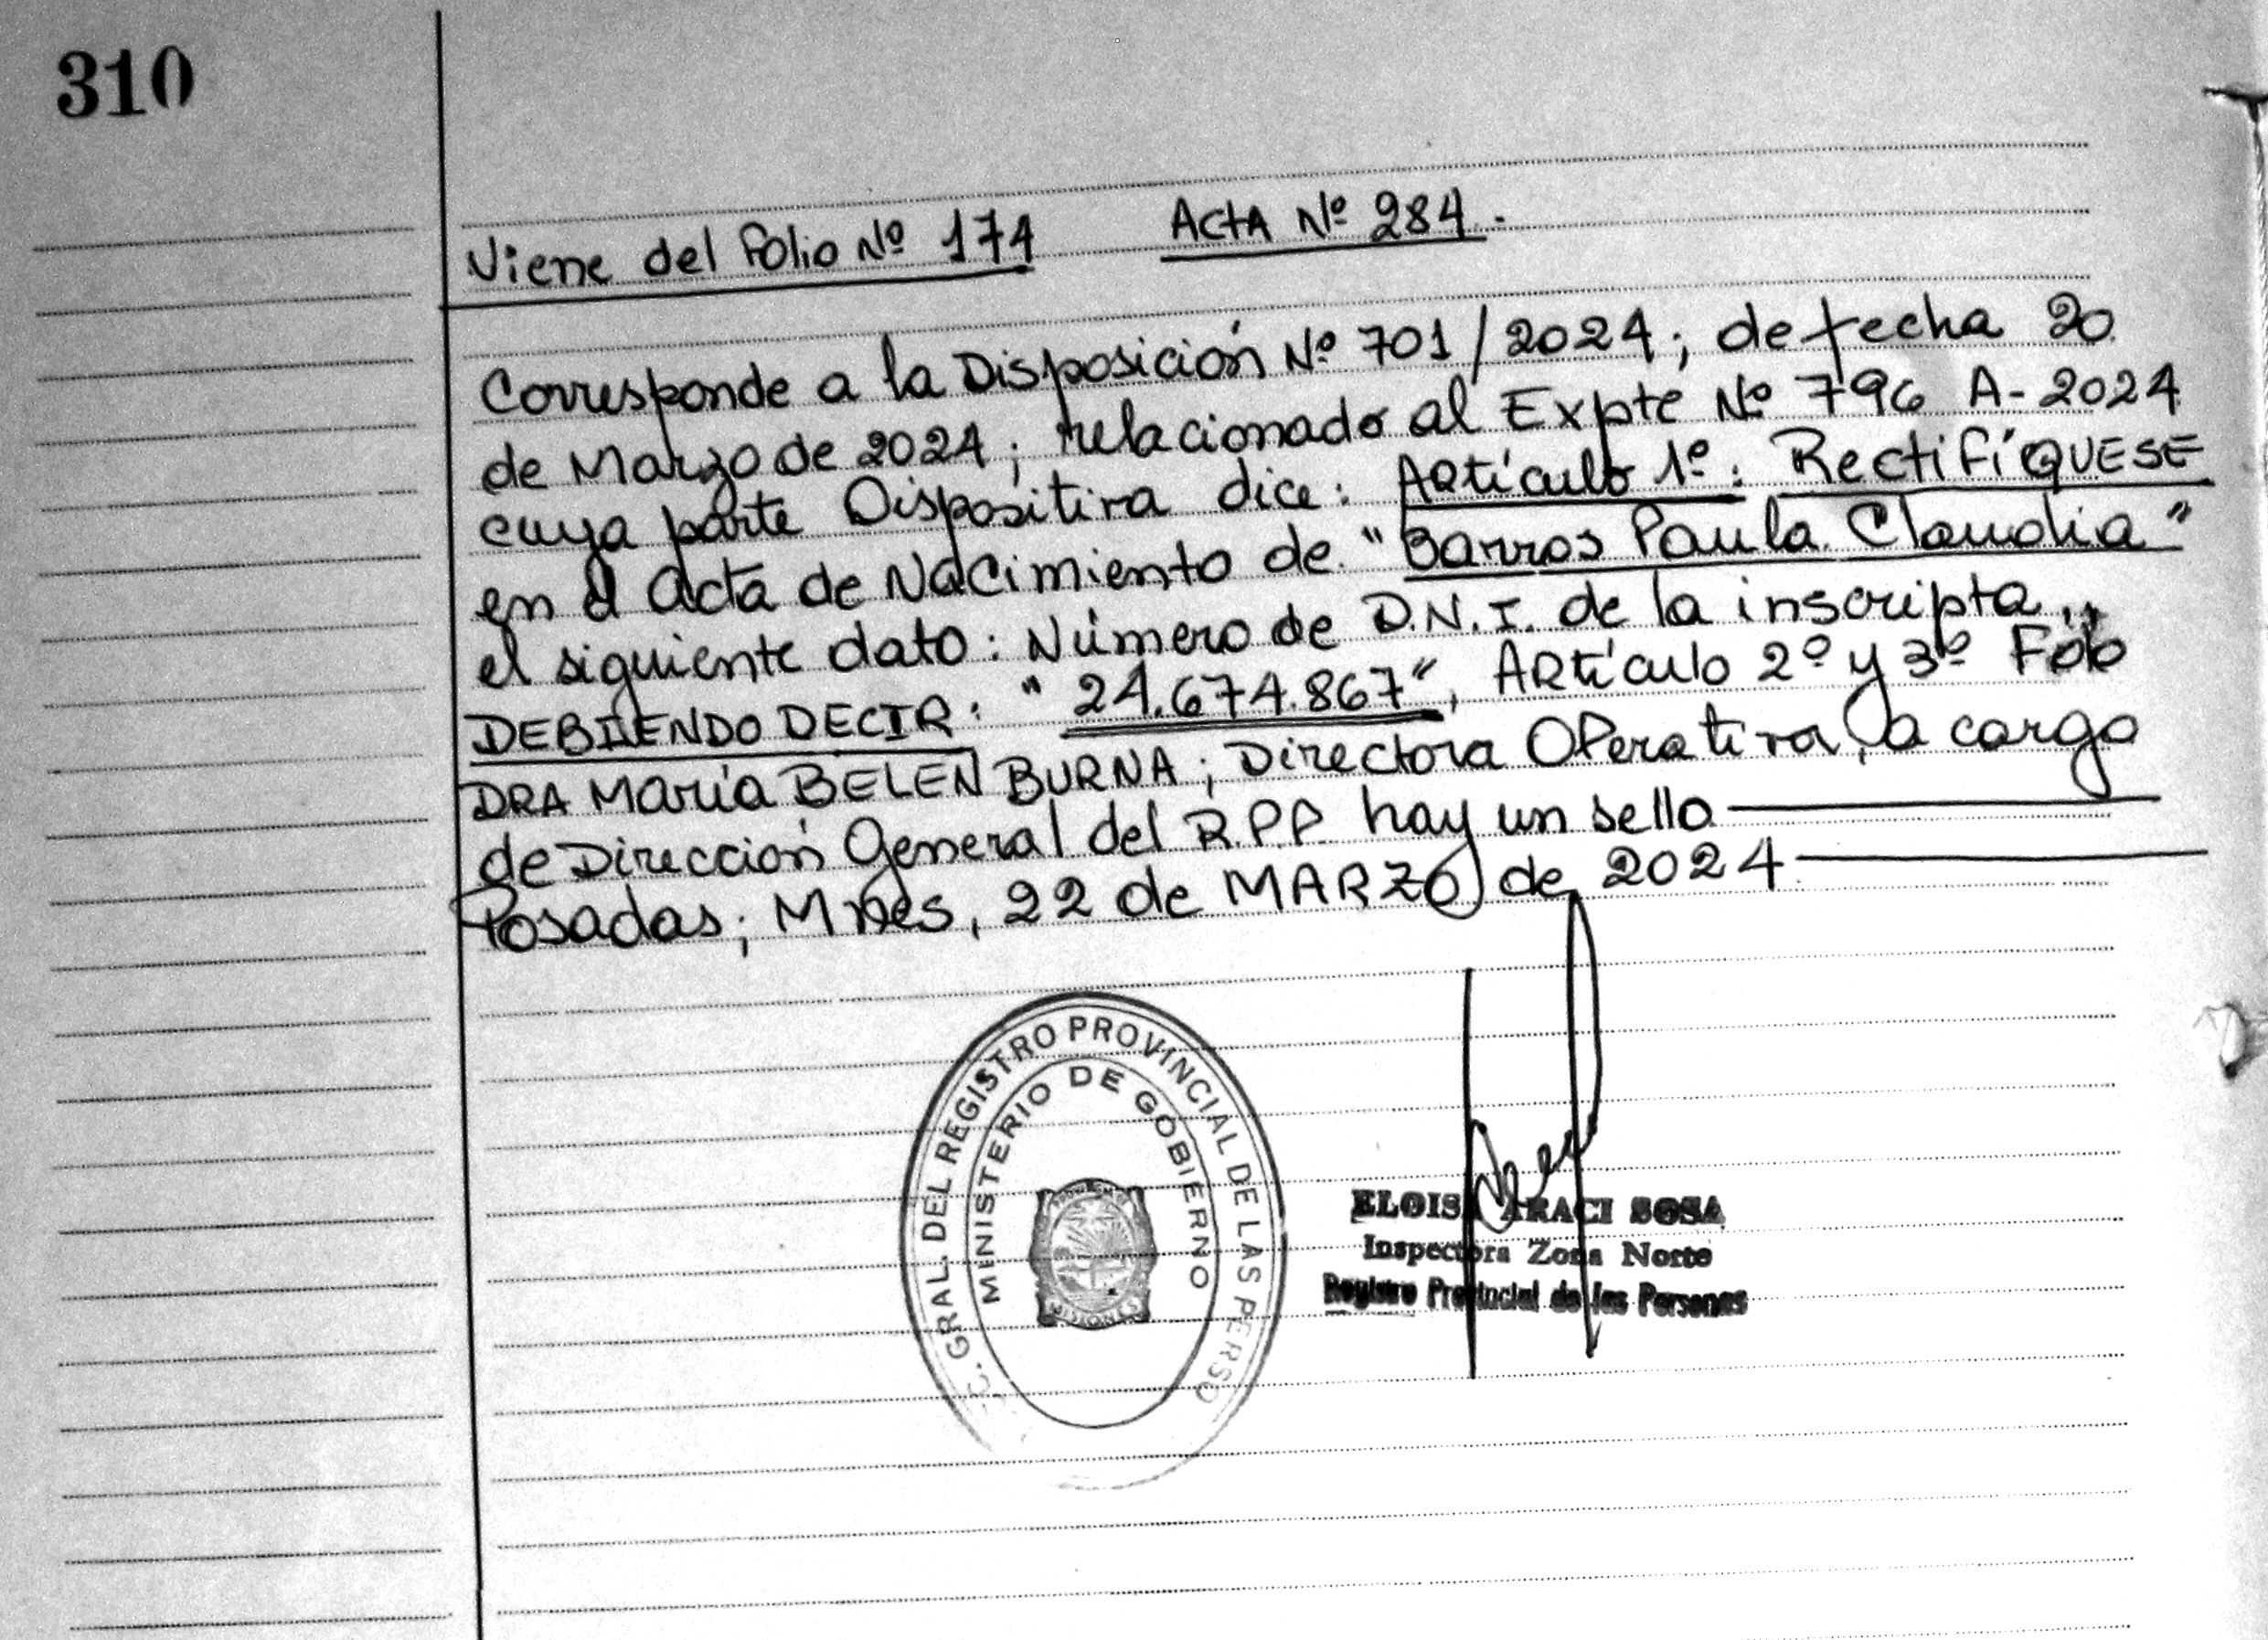 310
Viene del Folio Nº 174 ACtA Nº 284.
Corresponde a la Disposición Nº 701/2024; de fecha 20
de Marzo de 2024; relacionado al Expte Nº 796 A-2024
cuya parte Dispositiva dice: Artículo 1º: RectifíQUESE
en el acta de Nacimiento de "Barros Paula Claudia"
el siguiente dato: Número de D.N.I. de la inscripta,,
DEBIENDO DECIR: "24.674.867", Artículo 2º y 3º Fdo
DRA María BELEN BURNA; Directora Operativa, a cargo
de Dirección General del R.P.P. hay un sello
Posadas; Mnes, 22 de MARZO de 2024
C. GRAL. DEL REGISTRO PROVINCIAL DE LAS PERSO
MINISTERIO DE GOBIERNO
MISIONES
ELOIS ARACI SOSA
Inspectora Zona Norte
Registro Provincial de las Personas